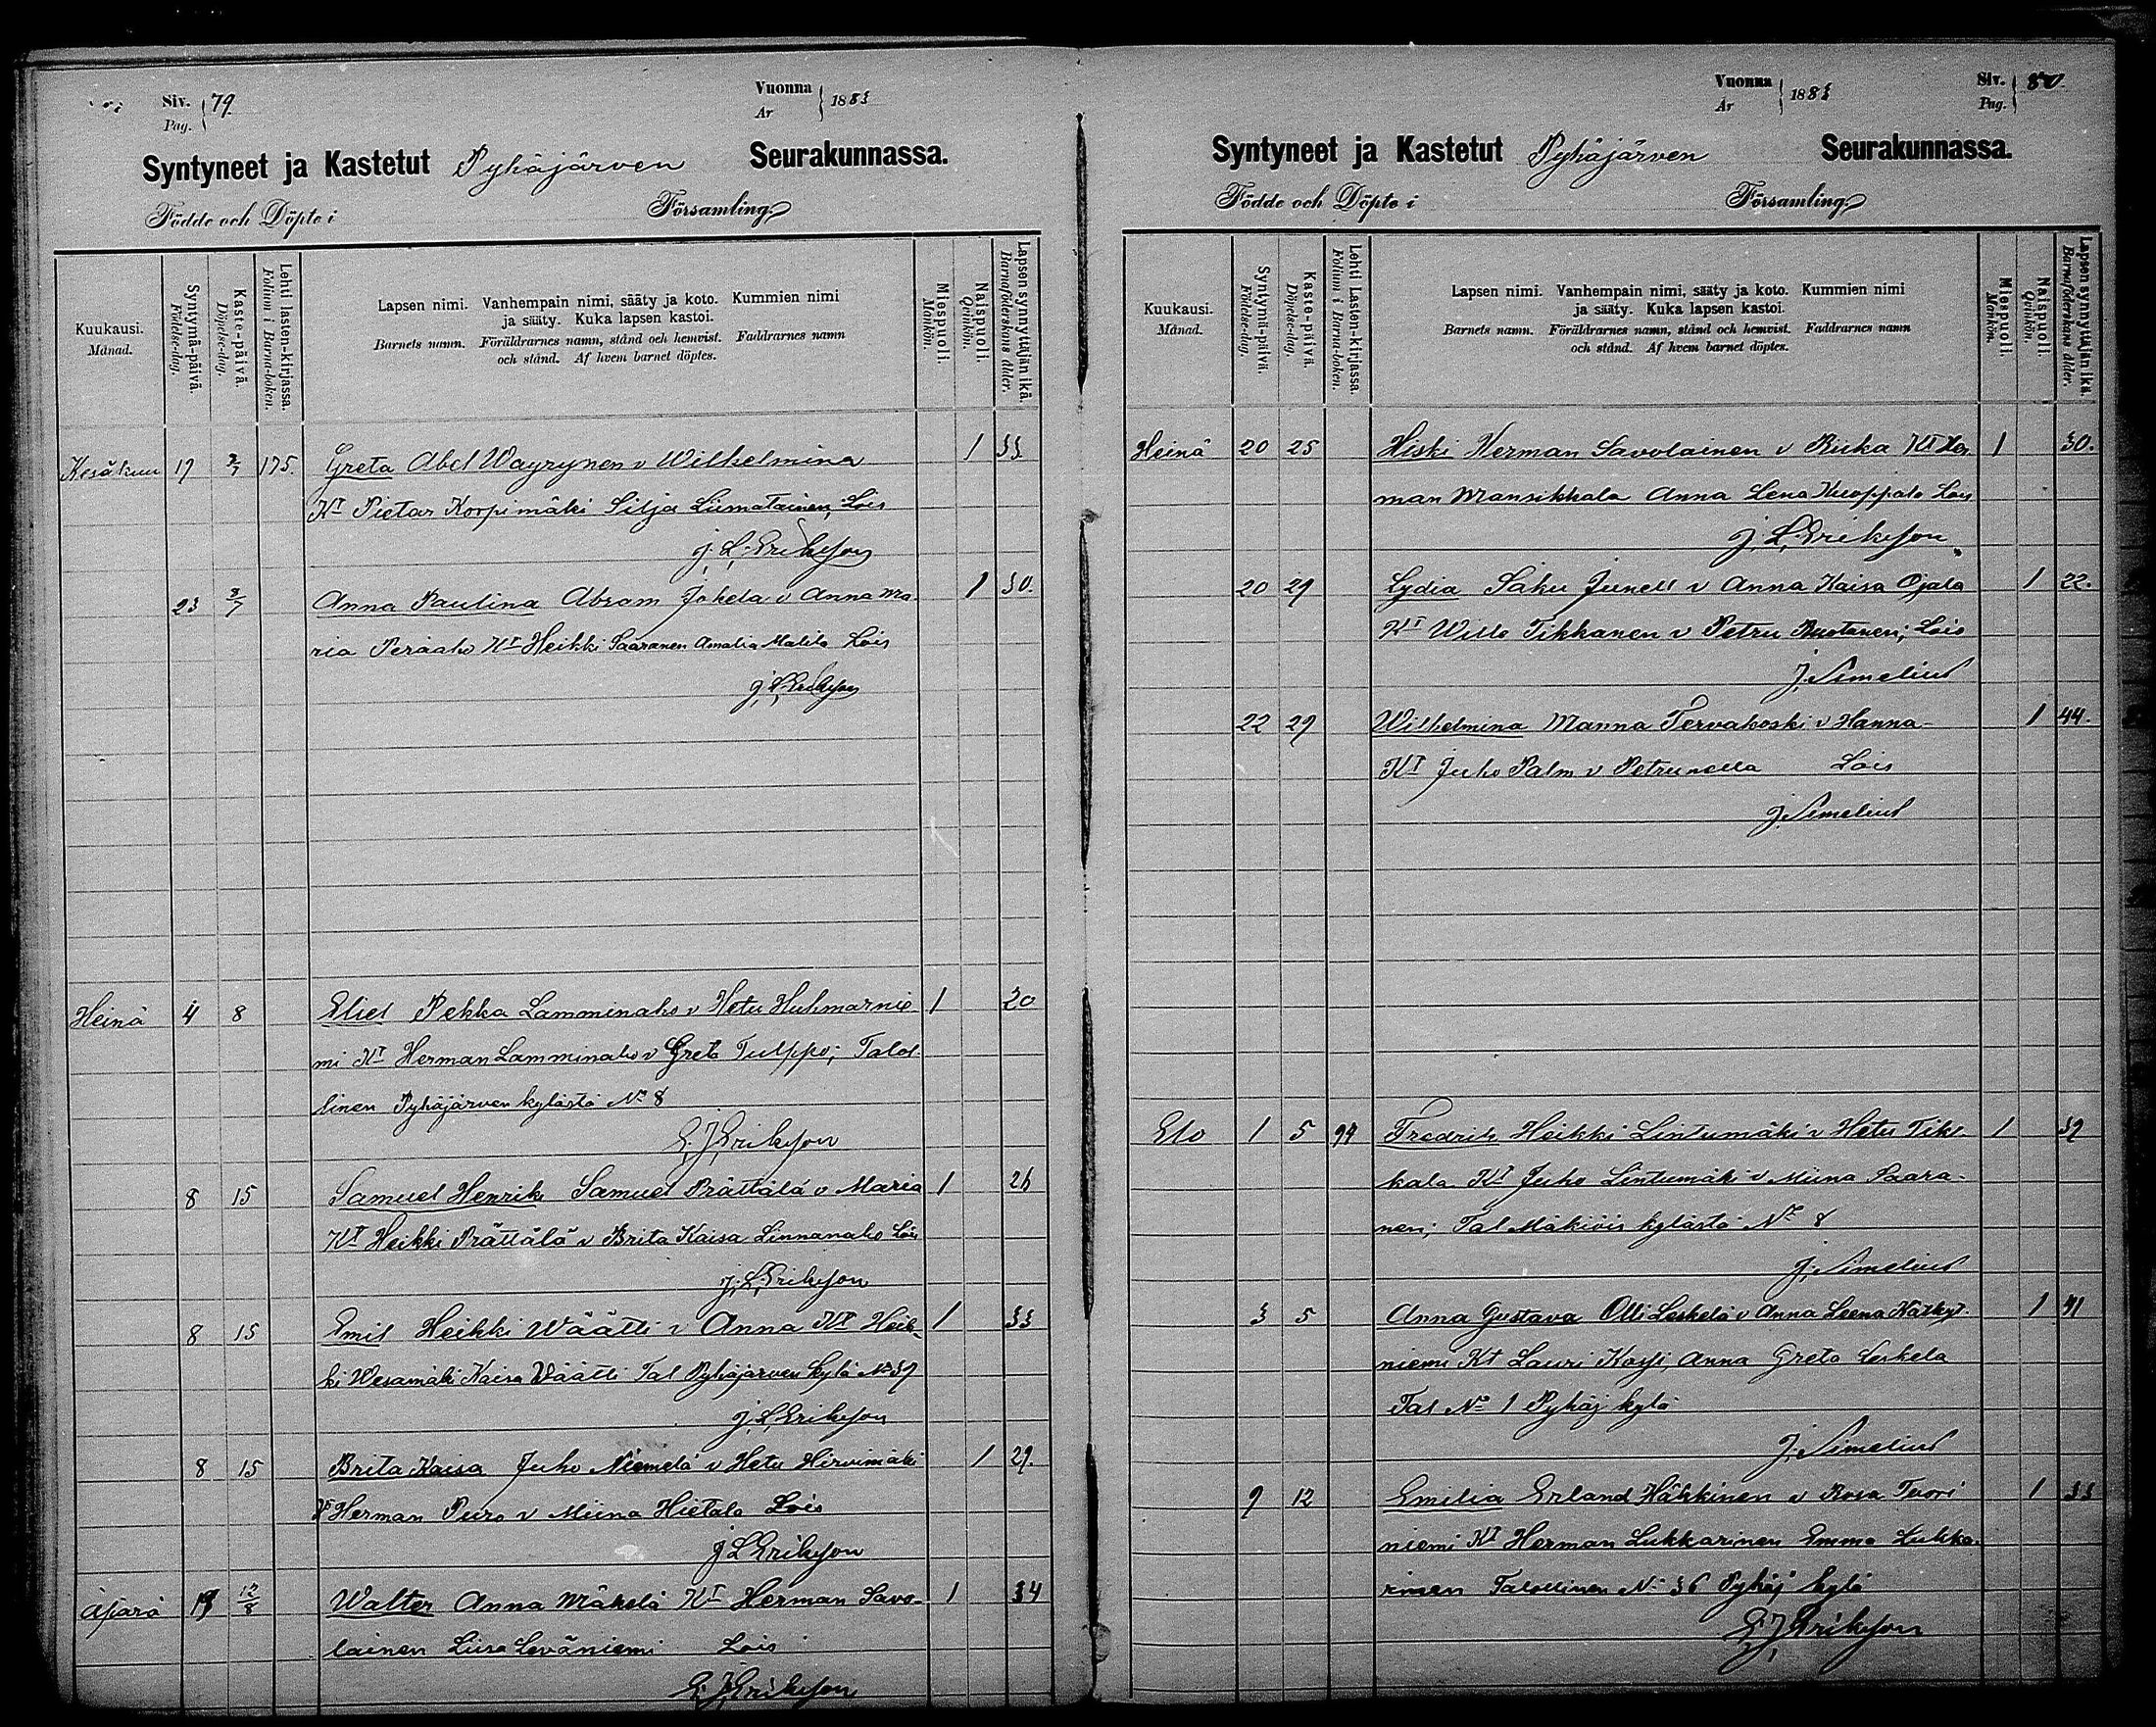 Siv. 79.
Pag.
Vuonna 1883
År
Syntyneet ja Kastetut Pyhäjärven Seurakunnassa.
Födde och Döpte i Församling
Kuukausi.
Månad.
Syntymä-päivä.
Födelse-dag.
Kaste-päivä.
Döpelse-dag.
Lehti lasten-kirjassa.
Folium i Barna-boken.
Lapsen nimi. Vanhempain nimi, sääty ja koto. Kummien nimi
ja sääty. Kuka lapsen kastoi.
Barnets namn. Föräldrarnes namn, stånd och hemvist. Faddrarnes namn
och stånd. Af hvem barnet döptes.
Miespuoli.
Mankön.
Naispuoli.
Qvinkön.
Lapsen synnyttäjän ikä.
Barnaföderskans ålder.
Kesäkuu 17 2/7 175. Greta Abel Wäyrynen v Wilhelmina 1 33
Kt Pietar Korpimäki Silja Liimatainen, Lois
J. L. Erikson
23 8/7 Anna Paulina Abram Jokela v Anna Ma- 1 30.
ria Peräaho Kt Heikki Saaranen Amalia Lois
J. L. Erikson
Heinä 4 8 Eliel Pekka Lamminaho v Hetu Huhmarnie- 1 20
mi Kt Herman Lamminaho v Greta Tulppo; Talol-
linen Pyhäjärven kylästä No 8
E. J. Erikson
8 15 Samuel Henrik Samuel Prättälä v Maria 1 26
Kt Heikki Prättälä v Brita Kaisa Linnanaho Lois
J. L. Erikson
8 15 Emil Heikki Väätti v Anna Kt Heik- 1 33
ki Vesamäki Kaisa Väätti Tal Pyhäjärven kylä No 37
J. L. Erikson
8 15 Brita Kaisa Juho Niemelä v Hetu Hirvimäki 1 29.
Kt Herman Puro v Miina Hietala Lois
J L Erikson
Äpärä 12/8 Walter Anna Mäkelä Kt Herman Savo- 1 34
lainen Liisa Leväniemi Lois
E. J. Erikson
Vuonna 1883
År
Siv. 80.
Pag.
Syntyneet ja Kastetut Pyhäjärven Seurakunnassa.
Födde och Döpte i Församling
Kuukausi.
Månad.
Syntymä-päivä.
Födelse-dag.
Kaste-päivä.
Döpelse-dag.
Lehti Lasten-kirjassa.
Folium i Barna-boken.
Lapsen nimi. Vanhempain nimi, sääty ja koto. Kummien nimi
ja sääty. Kuka lapsen kastoi.
Barnets namn. Föräldrarnes namn, stånd och hemvist. Faddrarnes namn
och stånd. Af hvem barnet döptes.
Miespuoli.
Mankön.
Naispuoli.
Qvinkön.
Lapsen synnyttäjän ikä.
Barnaföderskans ålder.
Heinä 20 25 Hiski Herman Savolainen v Riika Kt Her 1 30.
man Mansikkala Anna Lena Kuoppala Lois
J. L. Erikson
20 29 Lydia Saku Junell v Anna Kaisa Ojala 1 22.
Kt Wille Tikkanen v Petru Ruotanen; Lois
J. Simelius
22 29 Wilhelmina Manna Tervakoski v Hanna 1 44.
Kt Juho Palm v Petrunella Lois
J. Simelius
Elo 1 5 94 Fredrik Heikki Lintumäki v Hetu Tik- 1 39
kala Kt Juho Lintumäki v Miina Saara-
nen; Tal kylästä No 8
J. Simelius
3 5 Anna Gustava Olli Leskelä v Anna Leena Kätkyt- 1 41
niemi Kt Lauri Anna Greta Leskelä
Tal No 1 Pyhäj kylä
J. Simelius
9 12 Emilia Erland Häkkinen v Rosa Tuori 1 33
niemi Kt Herman Lukkarinen Emma Lukka-
rinen Talollinen No 36 Pyhäj kylä
E. J. Erikson